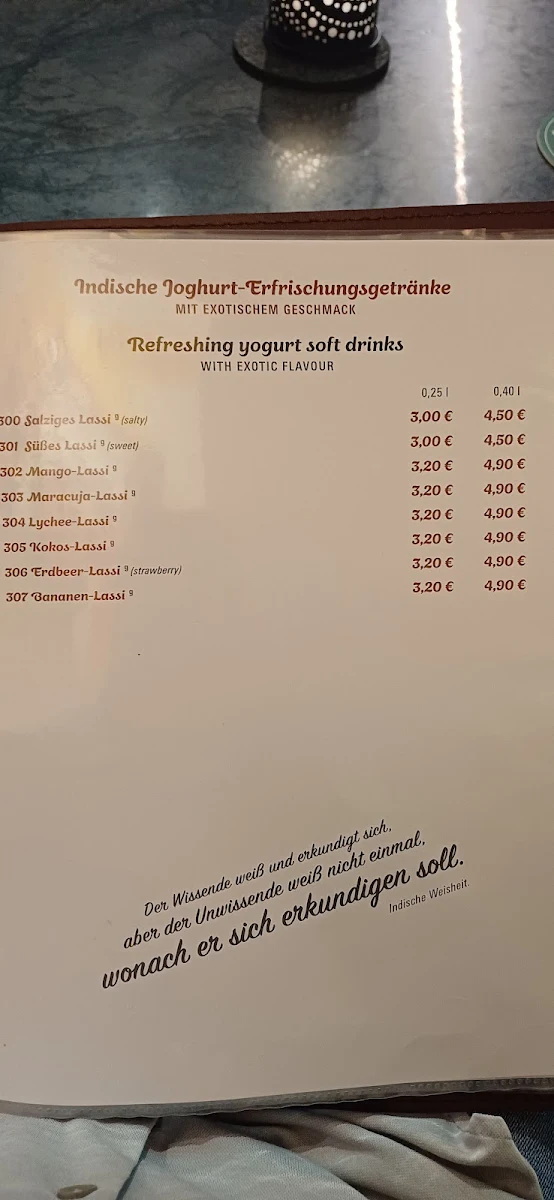 Indische Joghurt-Erfrischungsgetränke
MIT EXOTISCHEM GESCHMACK
Refreshing yogurt soft drinks
WITH EXOTIC FLAVOUR
0,25 l 0,40 l
300 Salziges Lassi g (salty) 3,00 € 4,50 €
301 Süßes Lassi g (sweet) 3,00 € 4,50 €
302 Mango-Lassi g 3,20 € 4,90 €
303 Maracuja-Lassi g 3,20 € 4,90 €
304 Lychee-Lassi g 3,20 € 4,90 €
305 Kokos-Lassi g 3,20 € 4,90 €
306 Erdbeer-Lassi g (strawberry) 3,20 € 4,90 €
307 Bananen-Lassi g 3,20 € 4,90 €
Der Wissende weiß und erkundigt sich,
aber der Unwissende weiß nicht einmal,
wonach er sich erkundigen soll.
Indische Weisheit.